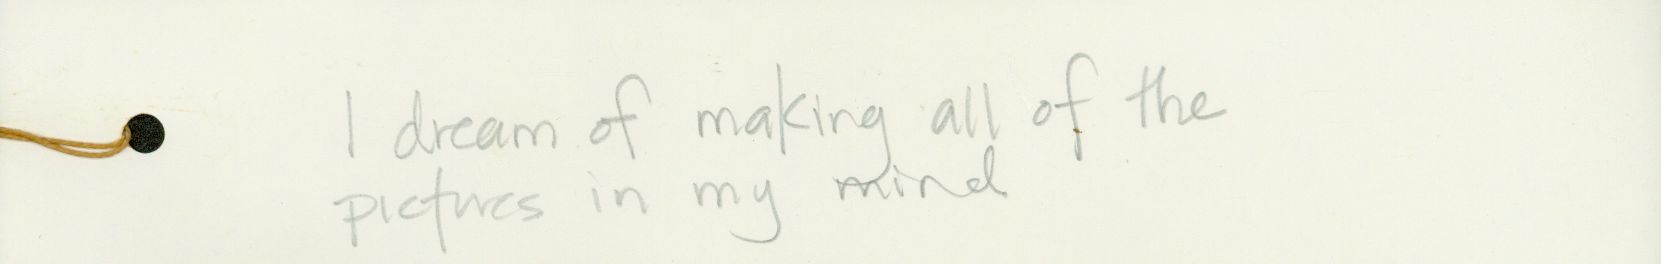 I dream of making all of the
pictures in my mind